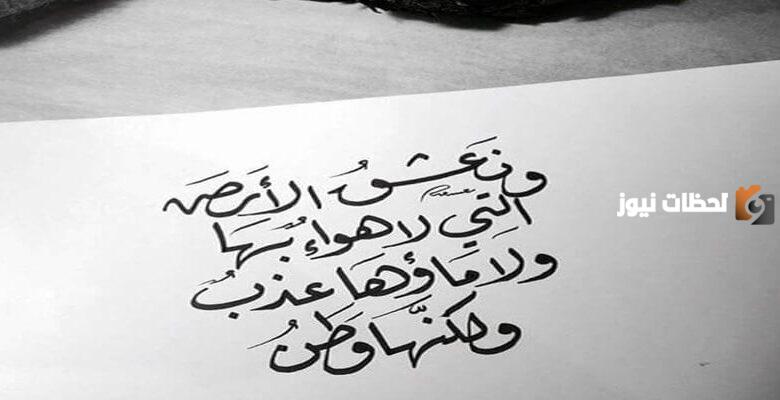 ونَعشقُ الأَرضَ
التِي لا هواءُ بهَا
ولَا مَاؤهَا عذبُ
ولكنَّها وَطنُ
لحظات نيوز